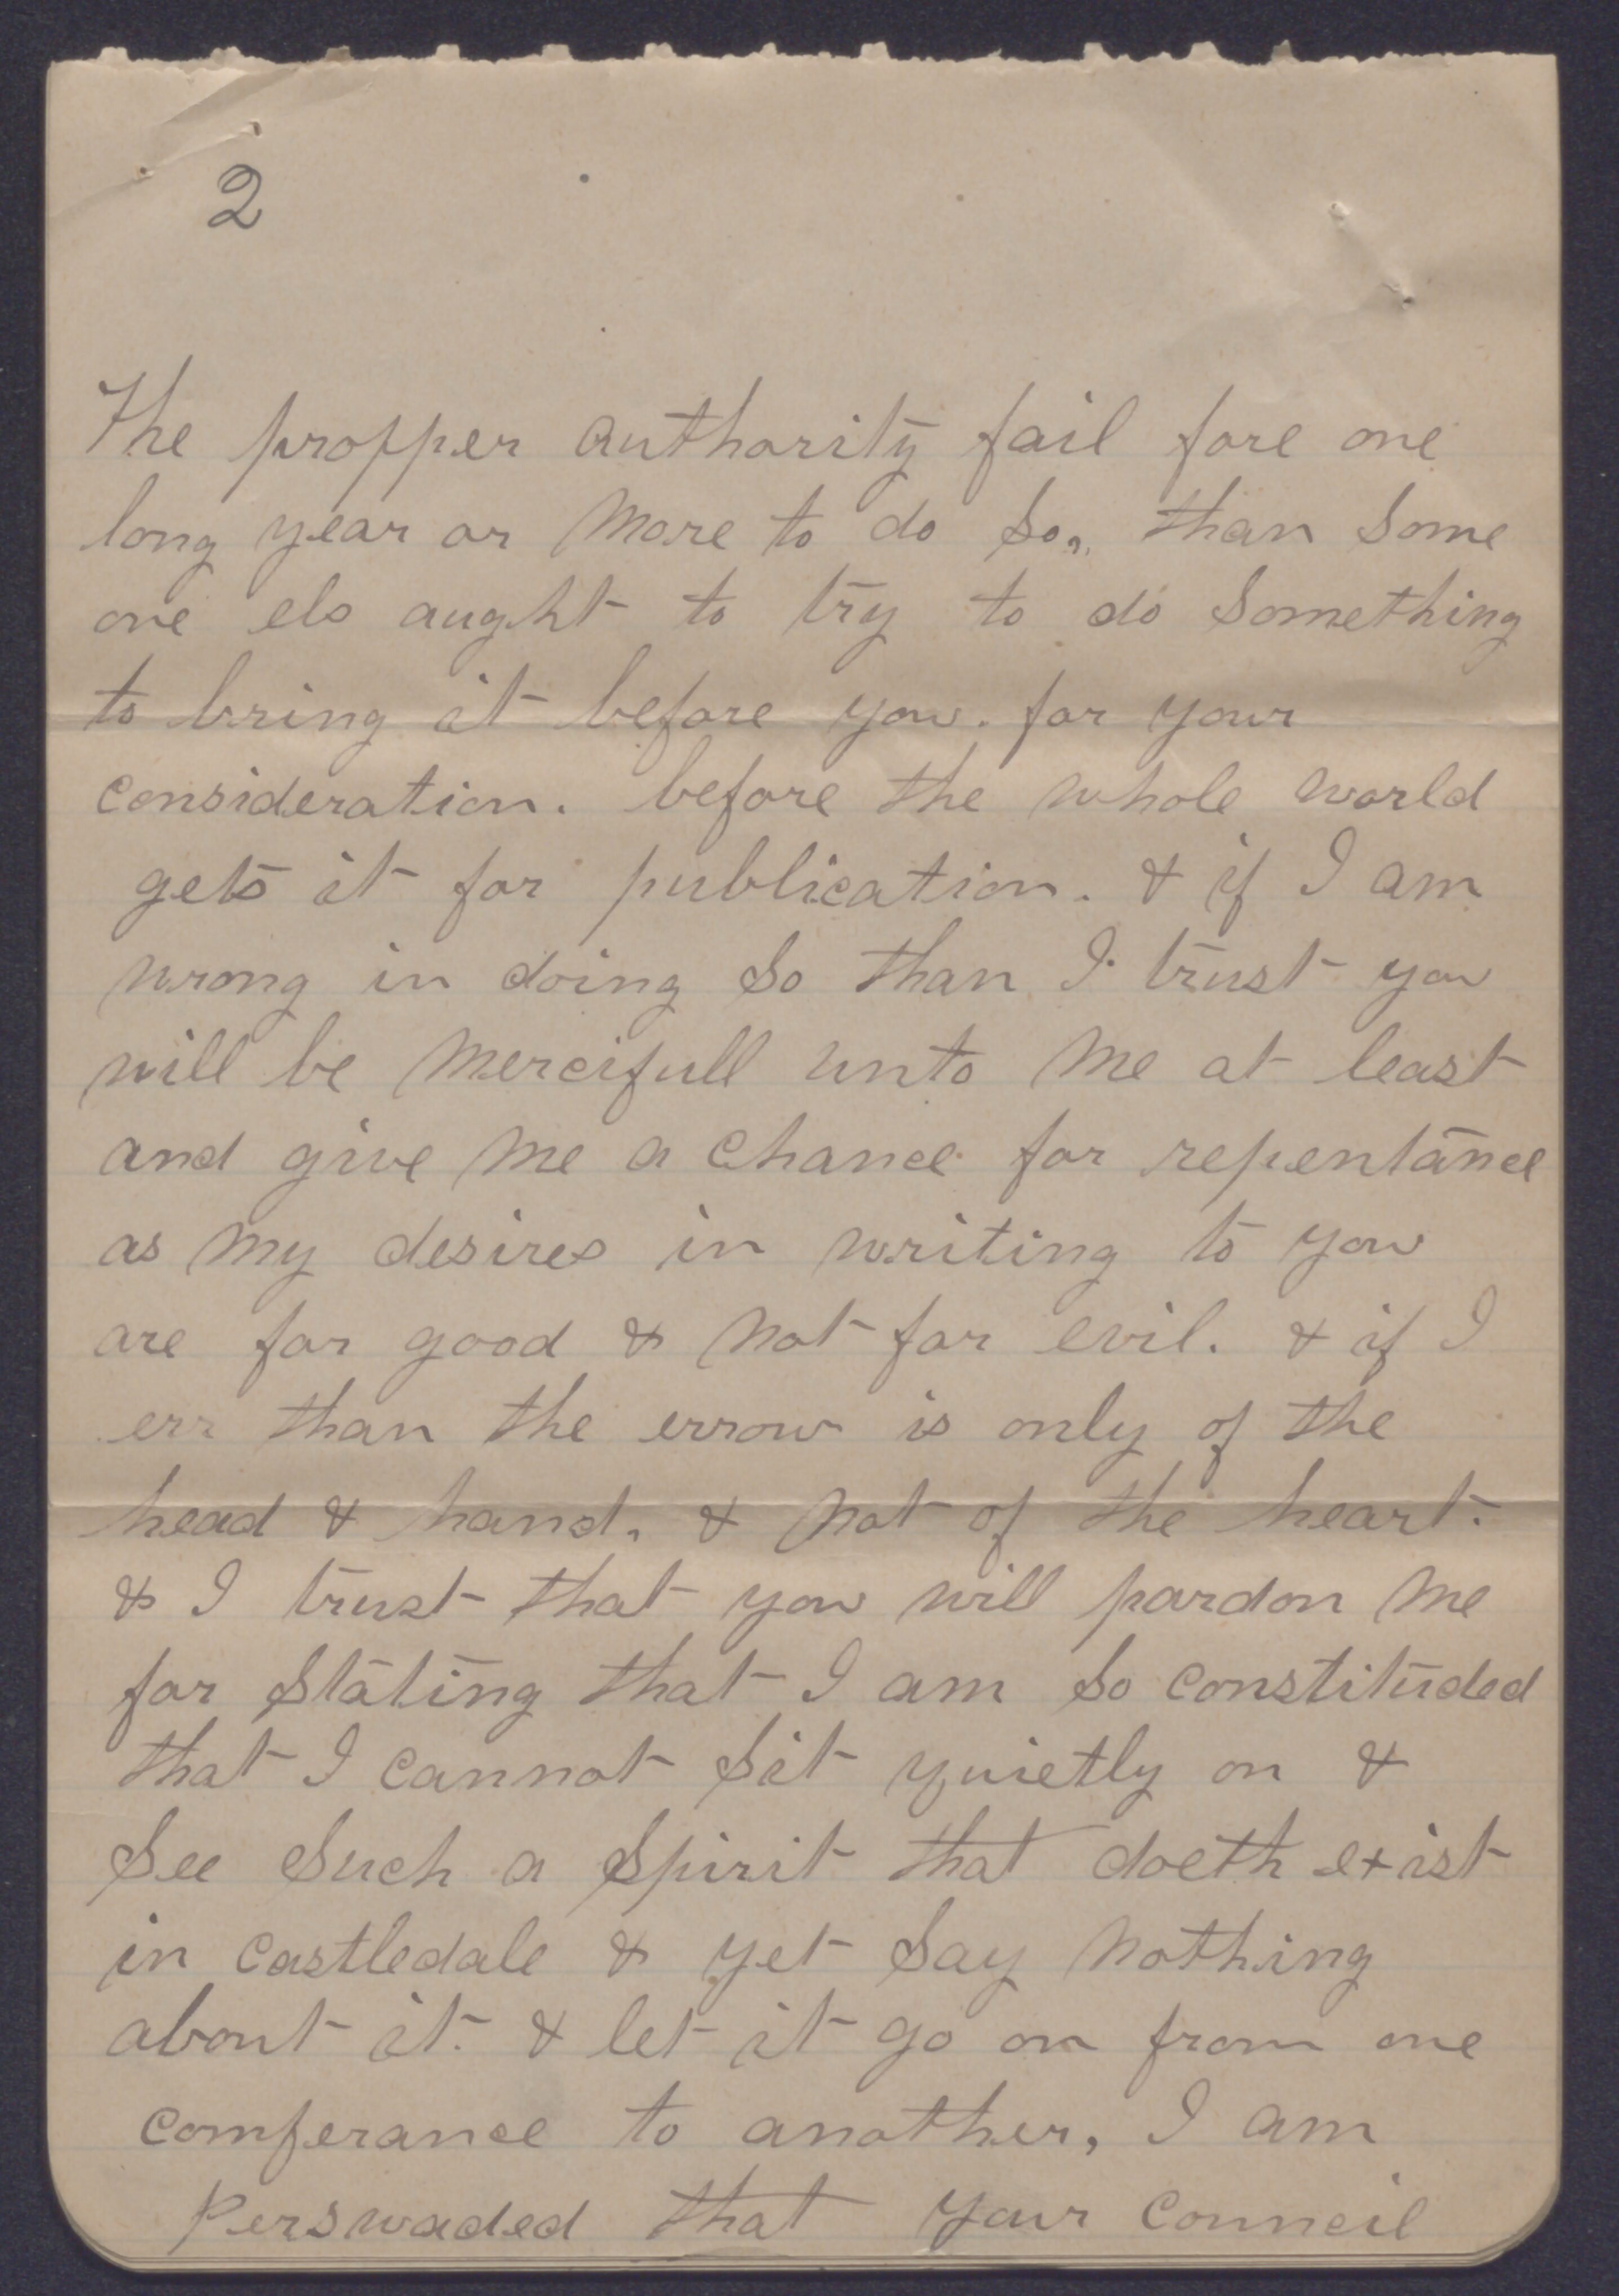 2
The propper authority fail fore one
long year or more to do so, than some
one els aught to try to do something
to bring it before you. for your
consideration. before the whole world
gets it for publication. & if I am
wrong in doing so than I trust you
will be mercifull unto me at least
and give me a chance for repentance
as my desires in writing to you
are for good & not for evil. & if I
err than the error is only of the
head & hand. & not of the heart.
& I trust that you will pardon me
for stating that I am so constituded
that I cannot sit quietly on &
see such a spirit that doeth exist
in castledale & yet say nothing
about it. & let it go on from one
comferance to another, I am
Perswaded that your council